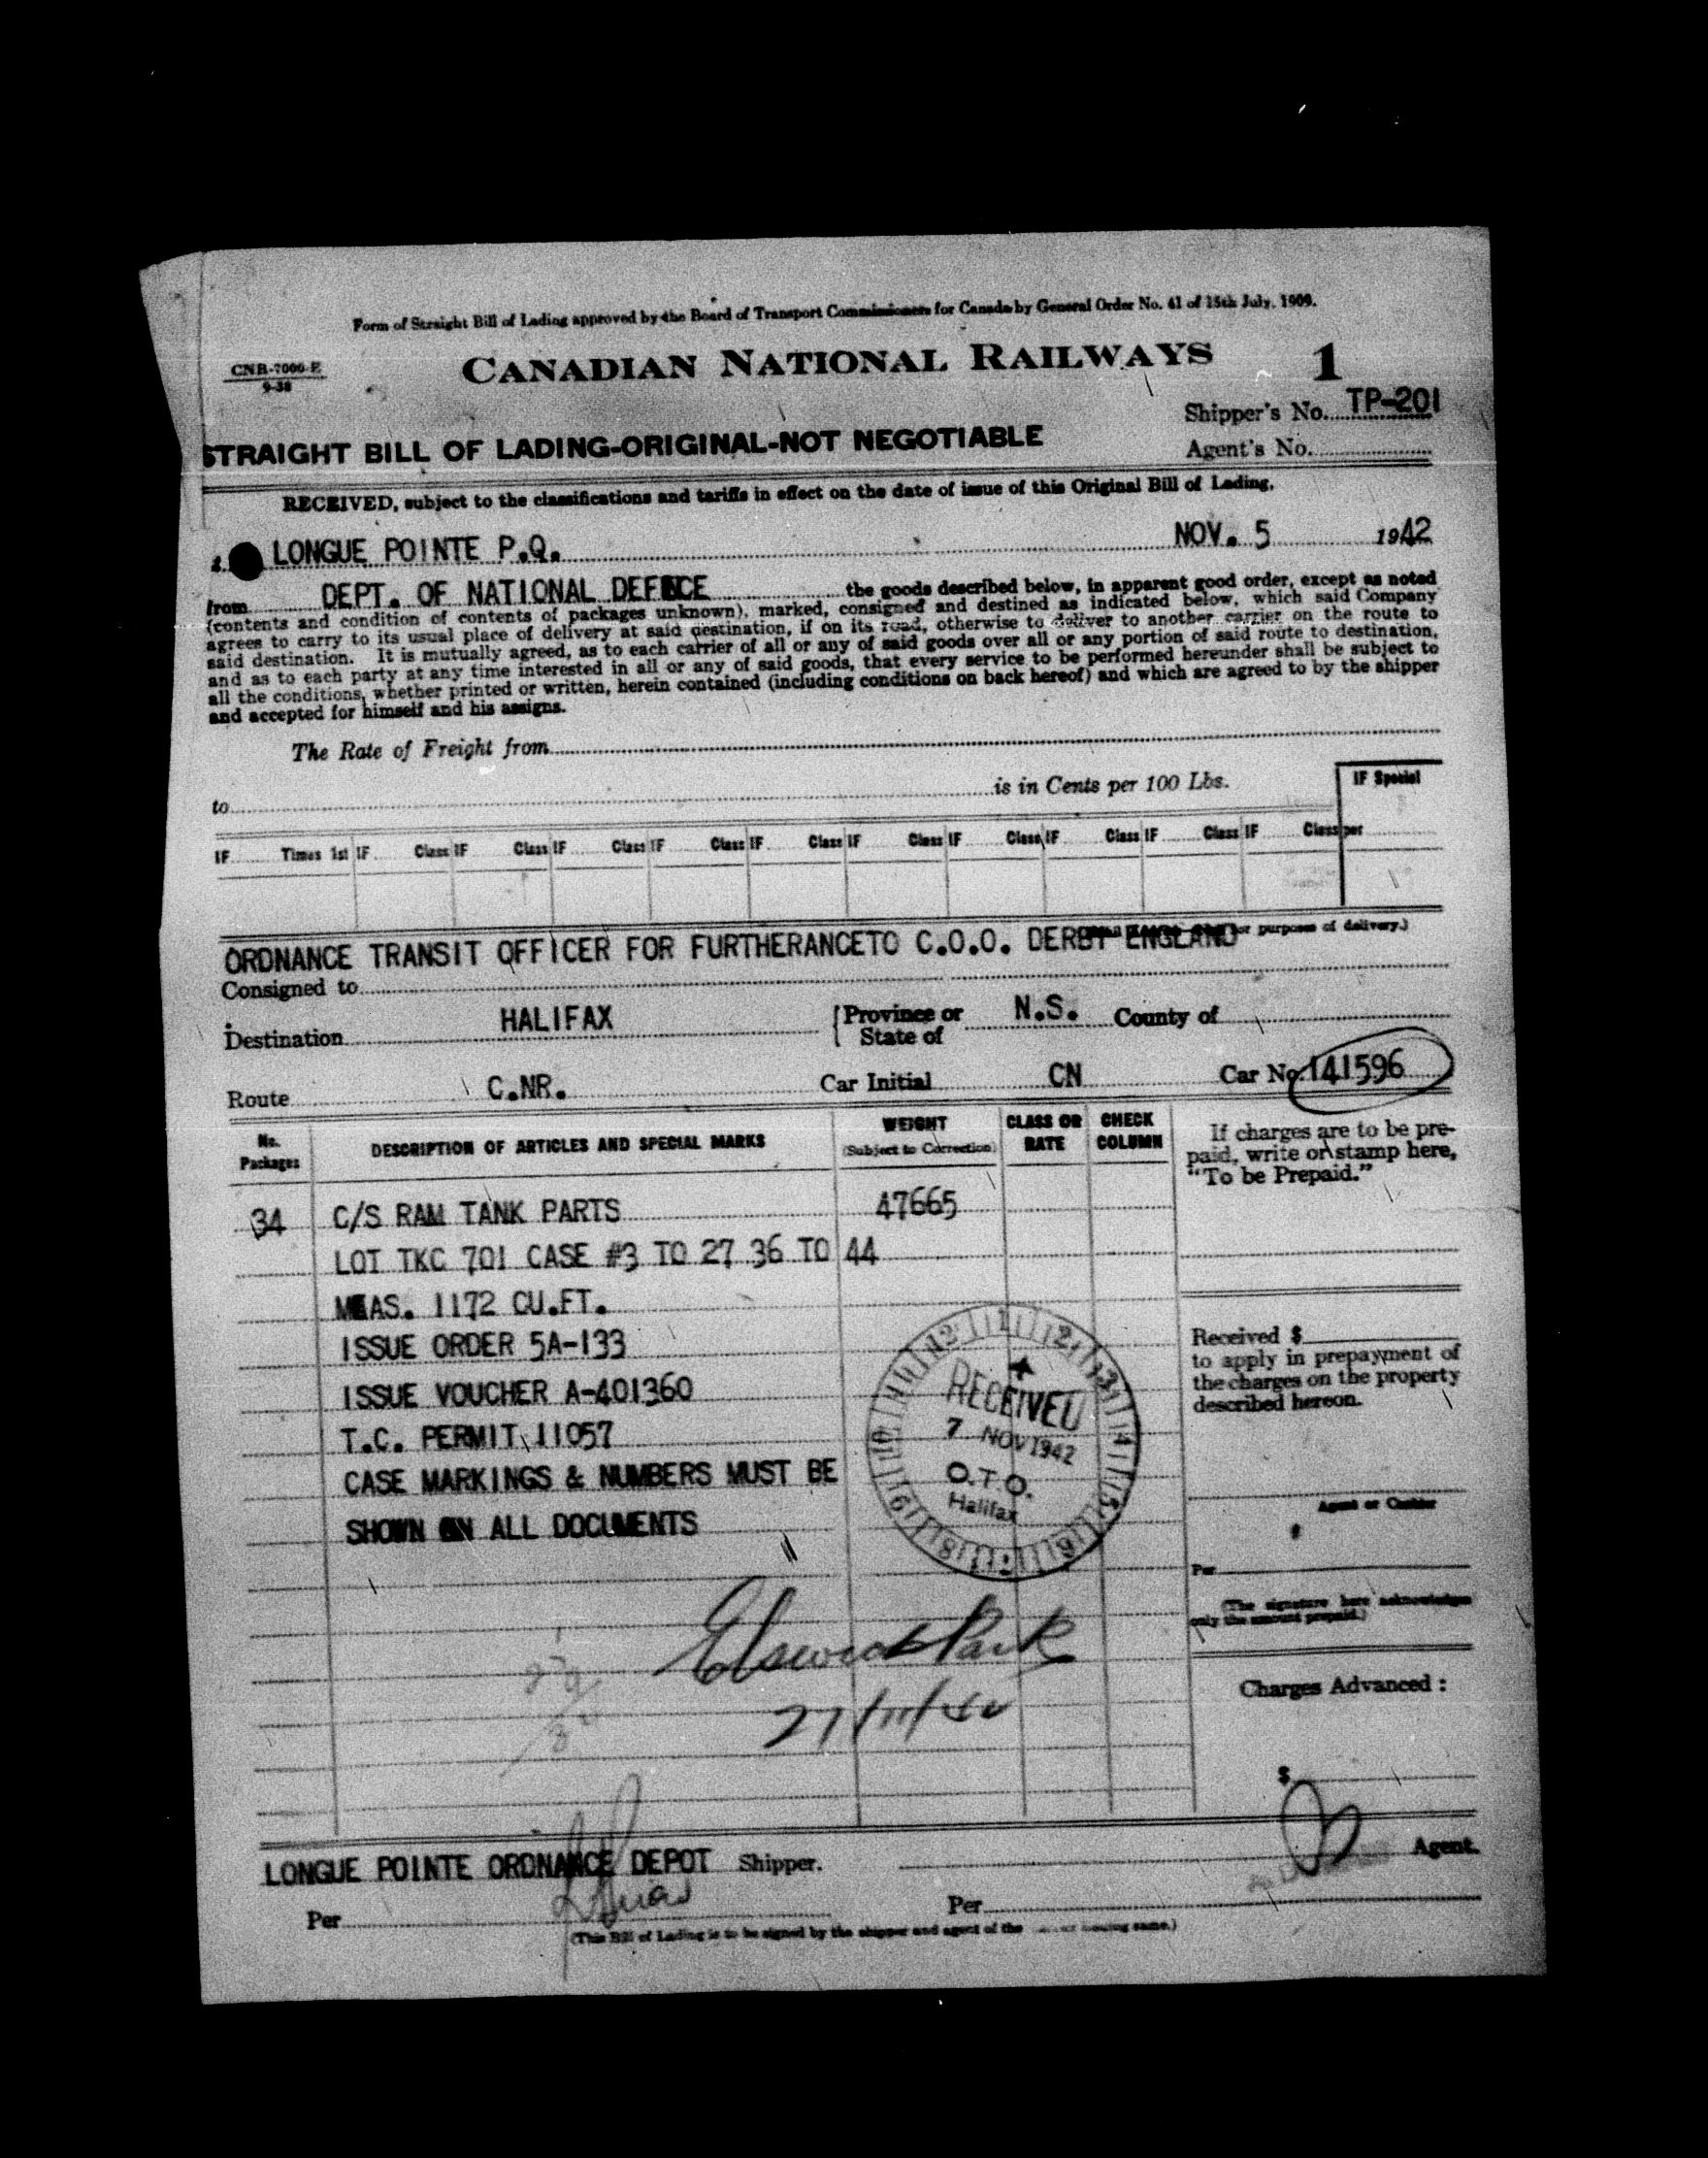 Form of Straight Bill of Lading approved by the Board of Transport Commissioners for Canada by General Order No. 41 of 15th July, 1909.
CNR-7000-E
9-38
CANADIAN NATIONAL RAILWAYS 1
Shipper's No. TP-201
STRAIGHT BILL OF LADING-ORIGINAL-NOT NEGOTIABLE
Agent's No.
RECEIVED, subject to the classifications and tariffs in effect on the date of issue of this Original Bill of Lading,
LONGUE POINTE P.Q. NOV. 5 1942
from DEPT. OF NATIONAL DEFENCE the goods described below, in apparent good order, except as noted
(contents and condition of contents of packages unknown), marked, consigned and destined as indicated below, which said Company
agrees to carry to its usual place of delivery at said destination, if on its road, otherwise to deliver to another carrier on the route to
said destination. It is mutually agreed, as to each carrier of all or any of said goods over all or any portion of said route to destination,
and as to each party at any time interested in all or any of said goods, that every service to be performed hereunder shall be subject to
all the conditions, whether printed or written, herein contained (including conditions on back hereof) and which are agreed to by the shipper
and accepted for himself and his assigns.
The Rate of Freight from
to is in Cents per 100 Lbs.
IF Special
IF Times 1st IF Class IF Class IF Class IF Class IF Class IF Class IF Class IF Class IF Class IF Class per
ORDNANCE TRANSIT OFFICER FOR FURTHERANCETO C.O.O. DERBY ENGLAND or purposes of delivery.)
Consigned to
Destination HALIFAX Province or State of N.S. County of
Route C.NR. Car Initial CN Car No. 141596
No. Packages DESCRIPTION OF ARTICLES AND SPECIAL MARKS WEIGHT (Subject to Correction) CLASS OR RATE CHECK COLUMN
If charges are to be pre-
paid, write or stamp here,
"To be Prepaid."
34 C/S RAM TANK PARTS 47665
LOT TKC 701 CASE #3 TO 27 36 TO 44
MEAS. 1172 CU.FT.
ISSUE ORDER 5A-133
ISSUE VOUCHER A-401360
T.C. PERMIT 11057
CASE MARKINGS & NUMBERS MUST BE
SHOWN ON ALL DOCUMENTS
12 1 2 3 4 5 6 7 8 9 10 11
RECEIVED
7 NOV 1942
O.T.O.
Halifax
Received $
to apply in prepayment of
the charges on the property
described hereon.
Agent or Cashier
Per
(The signature here acknowledges
only the amount prepaid.)
Park
Charges Advanced:
$
LONGUE POINTE ORDNANCE DEPOT Shipper.
Agent.
Per Per
(This Bill of Lading is to be signed by the shipper and agent of the issuing same.)